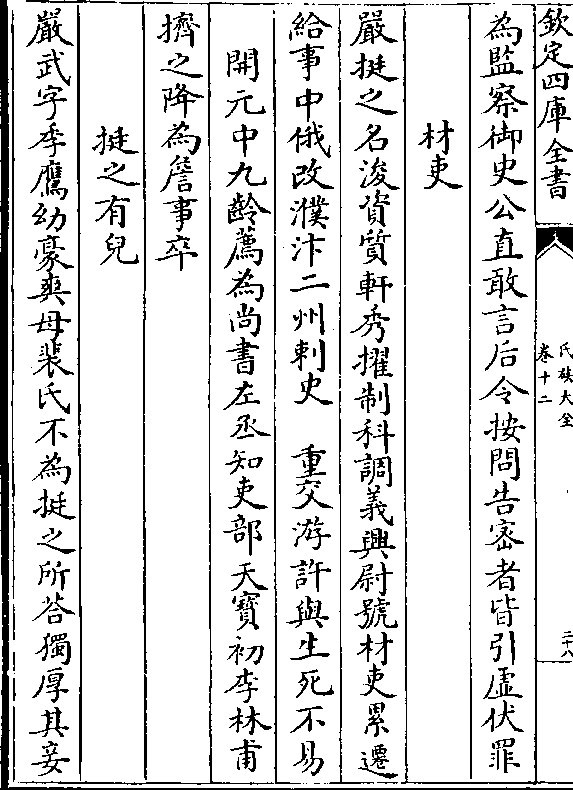 欽定四庫全書
氏族大全
卷十二
二十八
為監察御史公直敢言后令按問告密者皆引虛伏罪
材吏
嚴挺之名浚資質軒秀擢制科調義興尉號材吏累遷
給事中俄改濮汴二州刺史　重交游許與生死不易
開元中九齡薦為尚書左丞知吏部天寶初李林甫
擠之降為詹事卒
挺之有兒
嚴武字季鷹幼豪爽母裴氏不為挺之所荅獨厚其妾